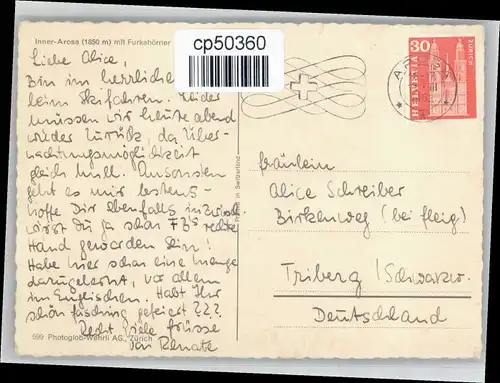 Inner-Arosa (1850 m) mit Furkahörner
cp50360
Liebe Alice,
Bin im herrlichen
beim Skifahren. Leider
müssen wir heute abend
wieder zurück, da Über-
nachtungsmöglichkeit
gleich null. Ansonsten
geht es mir bestens
hoffe Dir ebenfalls inzwisch.
wirst Du ja schon
rechte
Hand geworden sein!
Habe hier schon eine Menge
dazugelernt, vor allem
im Englischen. Habt Ihr
schön fasching gefeiert???
Recht viele Grüsse
von Renate
599 Photoglob-Wehrli AG., Zürich
Printed in Switzerland
30
HELVETIA
ZÜRICH
Fräulein
Alice Schreiber
Birkenweg (bei fleig)
Triberg /Schwarzw.
Deutschland